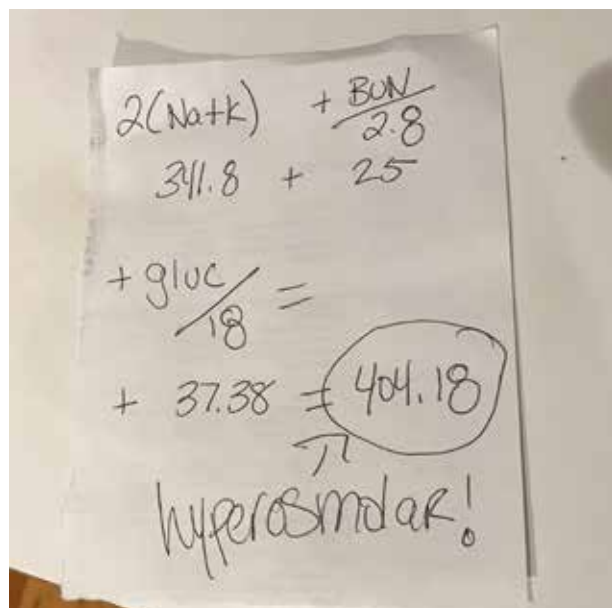 2(Na+K) + BUN/2.8
341.8 + 25
+ gluc/18 =
+ 37.38 = 404.18
hyperosmolar!